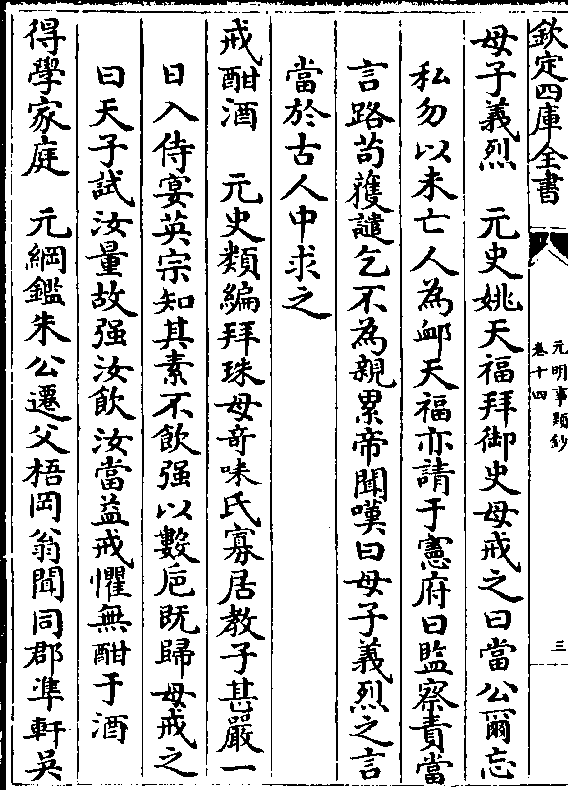 欽定四庫全書
元明事類鈔
卷十四
三
母子義烈　元史姚天福拜御史母戒之曰當公爾忘
私勿以未亡人為䘏天福亦請于憲府曰監察責當
言路茍獲譴乞不為親累帝聞嘆曰母子義烈之言
當於古人中求之
戒酣酒　元史類編拜珠母竒味氏寡居教子甚嚴一
日入侍宴英宗知其素不飲强以數巵既歸母戒之
曰天子試汝量故强汝飲汝當益戒懼無酣于酒
得學家庭　元綱鑑朱公遷父梧岡翁聞同郡凖軒吳